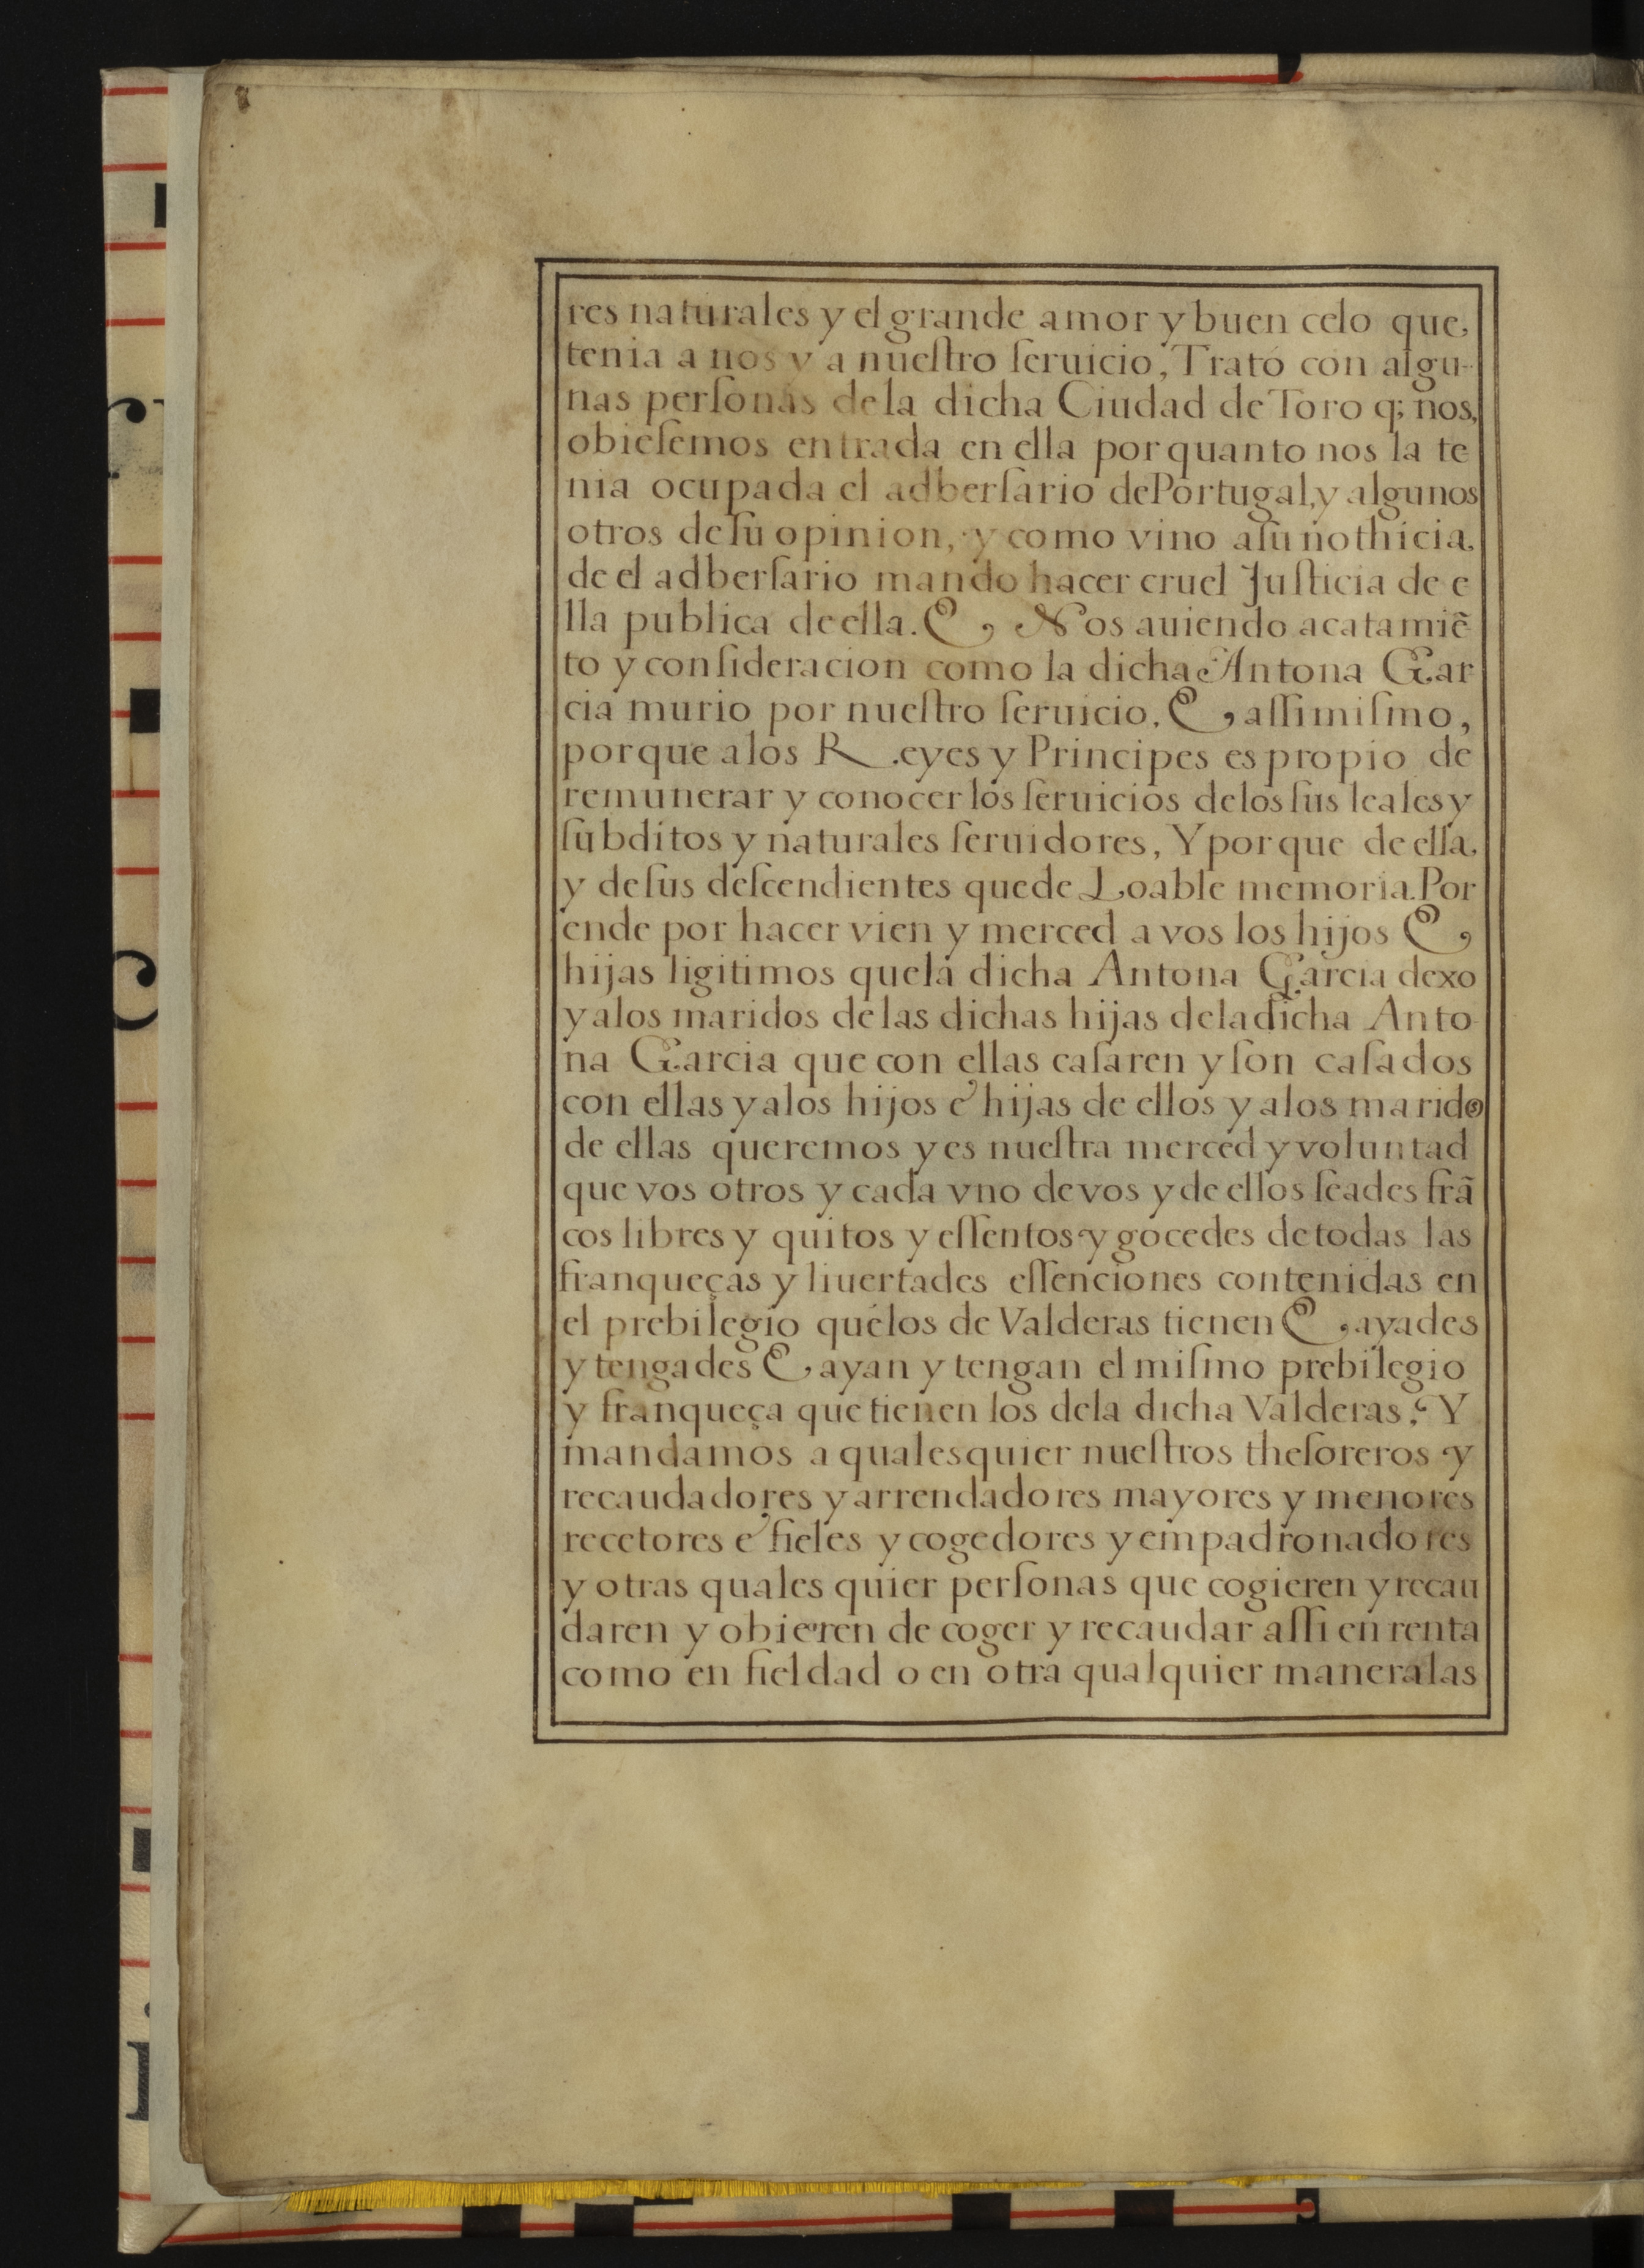 res naturales y el grande amor y buen celo que,
tenia a nos y a nueſtro ſeruicio, Trato con algu-
nas perſonas dela dicha Ciudad de Toro q; nos,
obieſemos entrada en ella por quanto nos la te
nia ocupada el adberſario dePortugal, y algunos
otros de ſu opinion, y como vino aſu nothicia,
de el adberſario mando hacer cruel Juſticia de e
lla publica de ella. E, Nos auiendo acatamiẽ
to y conſideracion como la dicha Antona Gar
cia murio por nueſtro ſeruicio. E, aſſi miſmo,
porque alos R.eyes y Principes es propio de
remunerar y conocer los ſeruicios delos ſus leales y
ſubditos y naturales ſeruidores, Y porque de ella,
y deſus deſcendientes quede Loable memoria. Por
ende por hacer vien y merced a vos los hijos E,
hijas ligitimos quela dicha Antona Garcia dexo
y alos maridos de las dichas hijas dela dicha Anto-
na Garcia que con ellas caſaren y ſon caſados
con ellas y alos hijos e hijas de ellos y alos maridos
de ellas queremos y es nueſtra merced y voluntad
que vos otros y cada vno de vos y de ellos ſeades frã
cos libres y quitos y eſſentos y gocedes de todas las
franqueças y liuertades eſſenciones contenidas en
el prebilegio quélos de Valderas tienen E, ayades
y tengades E, ayan y tengan el miſmo prebilegio
y franqueça que tienen los dela dicha Valderas, Y
mandamos a quales quier nueſtros theſoreros y
recaudadores y arrendadores mayores y menores
recetores e fieles y cogedores y empadronadores
y otras quales quier perſonas que cogieren y recau
daren y obieren de coger y recaudar aſſi en renta
como en fieldad o en otra qualquier manera las